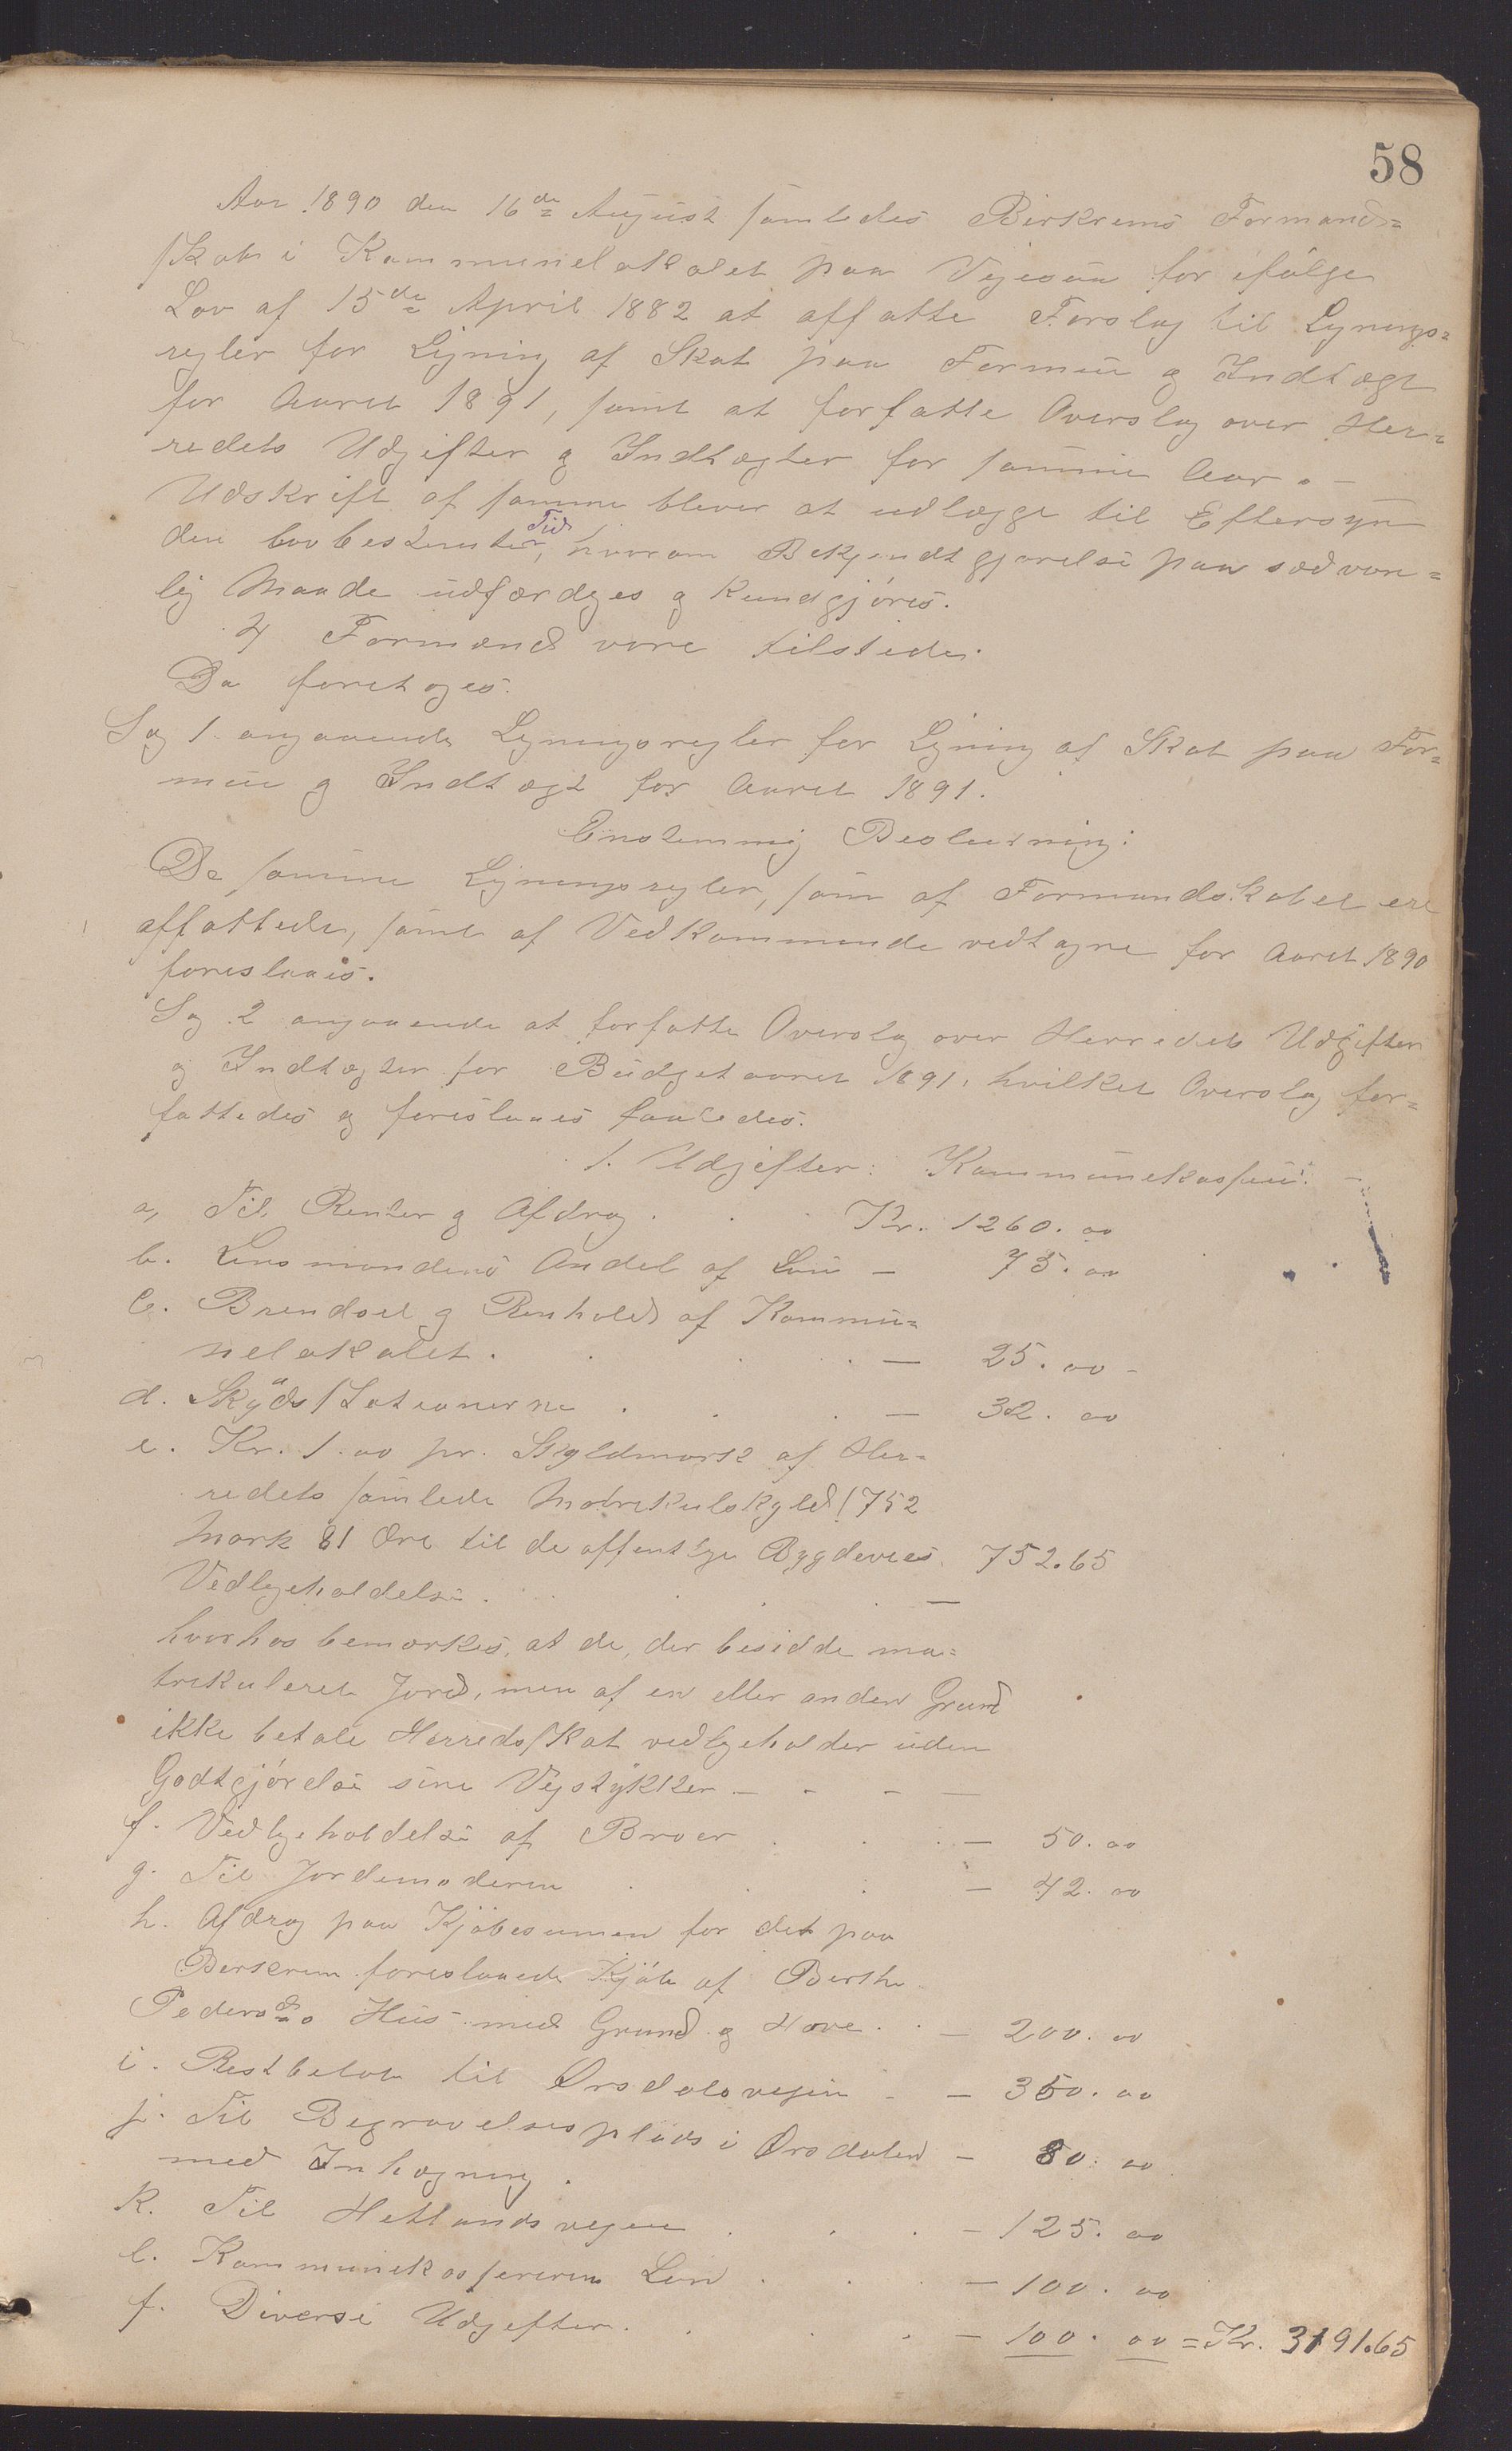 58
Aar 1890 den 16de August samledes Birkrems Formand=
skab i Kommunelokalet paa Vigesaa for ifølge
Lov af 15de April 1882 at affatte Forslag til Lignings=
regler for Ligning af Skat paa Formue og Indtægt
for Aaret 1891, samt at forfatte Overslag over Her=
redets Udgifter og Indtægter for samme Aar. –
Udskrift af samme bliver at udlægge til Eftersyn
den lovbestemte Tid, hvorom Bekjendtgjørelse paa sædvan=
lig Maade udfærdiges og kundgjøres.
4 Formænd vare tilstede.
Da foretoges:
Sag 1. angaaende Ligningsregler for Ligning af Skat paa For=
mue og Indtægt for Aaret 1891.
Enstemmig Beslutning:
De samme Ligningsregler, som af Formandskabet ere
affattede, samt af Vedkommende vedtagne for Aaret 1890
foreslaaes.
Sag 2 angaaende at forfatte Overslag over Herredets Udgifter
og Indtægter for Budgetaaret 1891, hvilket Overslag for=
fattedes og foreslaaes saaledes.
1. Udgifter: Kommunekassen: –
a, Til Renter og Afdrag . . . Kr. 1260. 00
b. Lensmandens Andel af Løn – 75. 00
c. Brendsel og Renhold af Kommu=
nelokalet . . . . – 25. 00 –
d. Skydsstationerne . . . – 32. 00
e. Kr. 1.00 pr. Skyldmark af Her=
redets samlede Matrikulskyld (752
Mark 81 Øre til de offentlige Bygdeveies 752.65
Vedligeholdelse . . . . –
hvorhos bemærkes, at de, der besidde ma=
trikuleret Jord, men af en eller anden Grund
ikke betale Herredsskat vedligeholder uden
Godtgjørelse sine Veistykker – - - –
f. Vedligeholdelse af Broer . . . – 50. 00
g. Til Jordemoderen . . . – 42. 00
h. Afdrag paa Kjøbesummen for det paa
Berkrem foreslaaede Kjøb af Berthe
Pedersd.s Hus med Grund og Have . . – 200. 00
i. Restbeløb til Ørsdalsveien - – 350. 00
j. Til Begravelsesplads i Ørsdalen – 80. 00
med Inhegning .
k. Til Hetlandsveien . . . – 125. 00
l. Kommunekassererens Løn . . . – 100. 00
f. Diverse Udgifter . . . . – 100. 00 = Kr. 3191.65